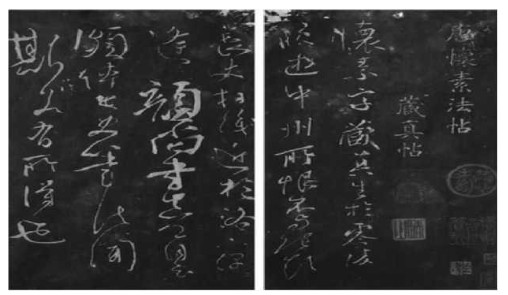 唐懷素法帖
藏真帖
懷素字藏真生於零陵
晚遊中州所恨不與張顛
長史相識近於洛下偶
逢顏尚書真卿自云
頗傳長史筆法聞
斯八法若有所得也